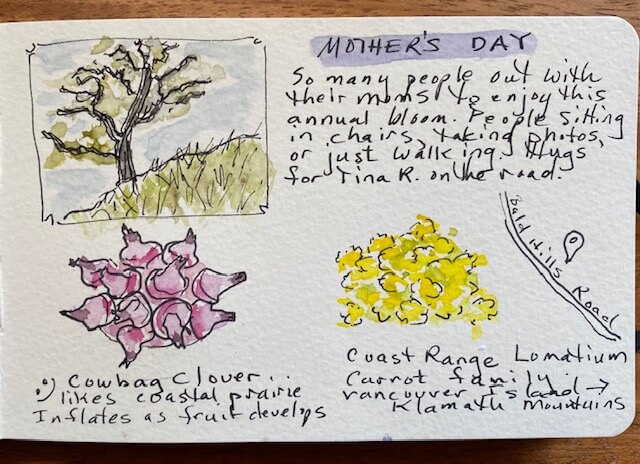 MOTHER'S DAY
So many people out with
their moms to enjoy this
annual bloom. People sitting
in chairs, taking photos,
or just walking. Hugs
for Tina R. on the road.
Bald Hills Road
Cowbag Clover...
likes coastal prairie
Inflates as fruit develops
Coast Range Lomatium
Carrot family
Vancouver Island →
Klamath Mountains